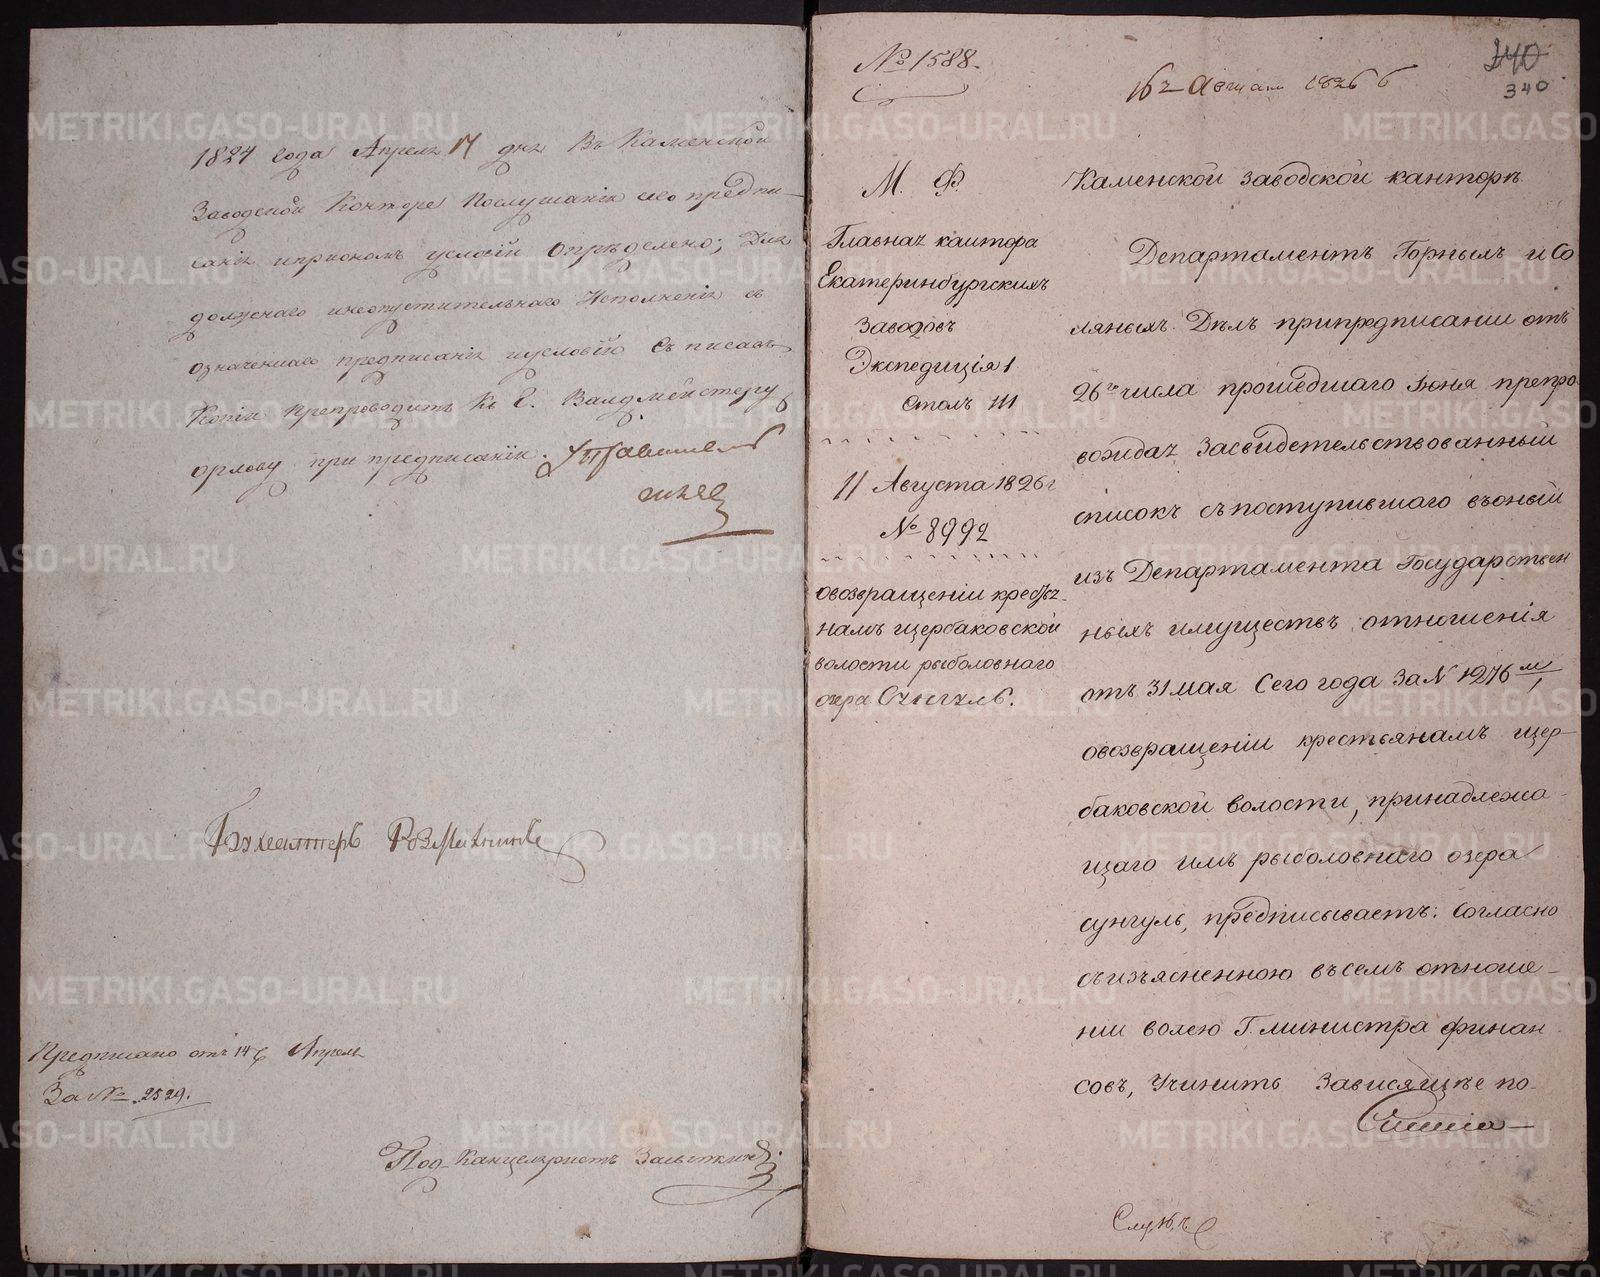 1824 года Апреля 17 дня Въ Каменской
Заводской Конторе Послушанiи сего предпи-
санiя условiй Определено; Для
должнаго инеопустительнаго Исполненiя съ
означеннаго предписанiя иусловiй Съ писавъ
Копiи Препроводить Къ Г. Валдмейстеру
орлову при предписанiи. Управитель
Бухгалтеръ
Предписано отъ 14 Апреля
За № 2529.
Под Канцеляристъ
№ 1588.
16 Августа 1826
240
340
М. Ф.
Главная кантора
Екатеринбургскихъ
Заводовъ
Экспедицiя 1
Столъ III
11 Августа 1826 г
№ 8992
овозвращенiи кресья-
намъ щербаковской
волости рыболовнаго
озера Сунгуль.
Каменской заводской канторѣ
Департаментъ Горныхъ и Со
ляныхъ Дѣлъ припредписанiи отъ
26го числа прошедшаго Iюня препро
вождая Засвидетельствованный
списокъ съпоступившаго въоный
изъ Департамента Государствен
ныхъ имуществъ отношенiя
отъ 31 мая Сего года За N 1276м,
овозвращенiи крестьянамъ щер-
баковской волости, принадлежа-
щаго имъ рыболовнаго озера
сунгуль, предписываетъ: Согласно
съизъясненною въсемъ отноше-
нiи волею Г. министра финан
совъ, Учинить Зависящѣе по-
METRIKI.GASO-URAL.RU